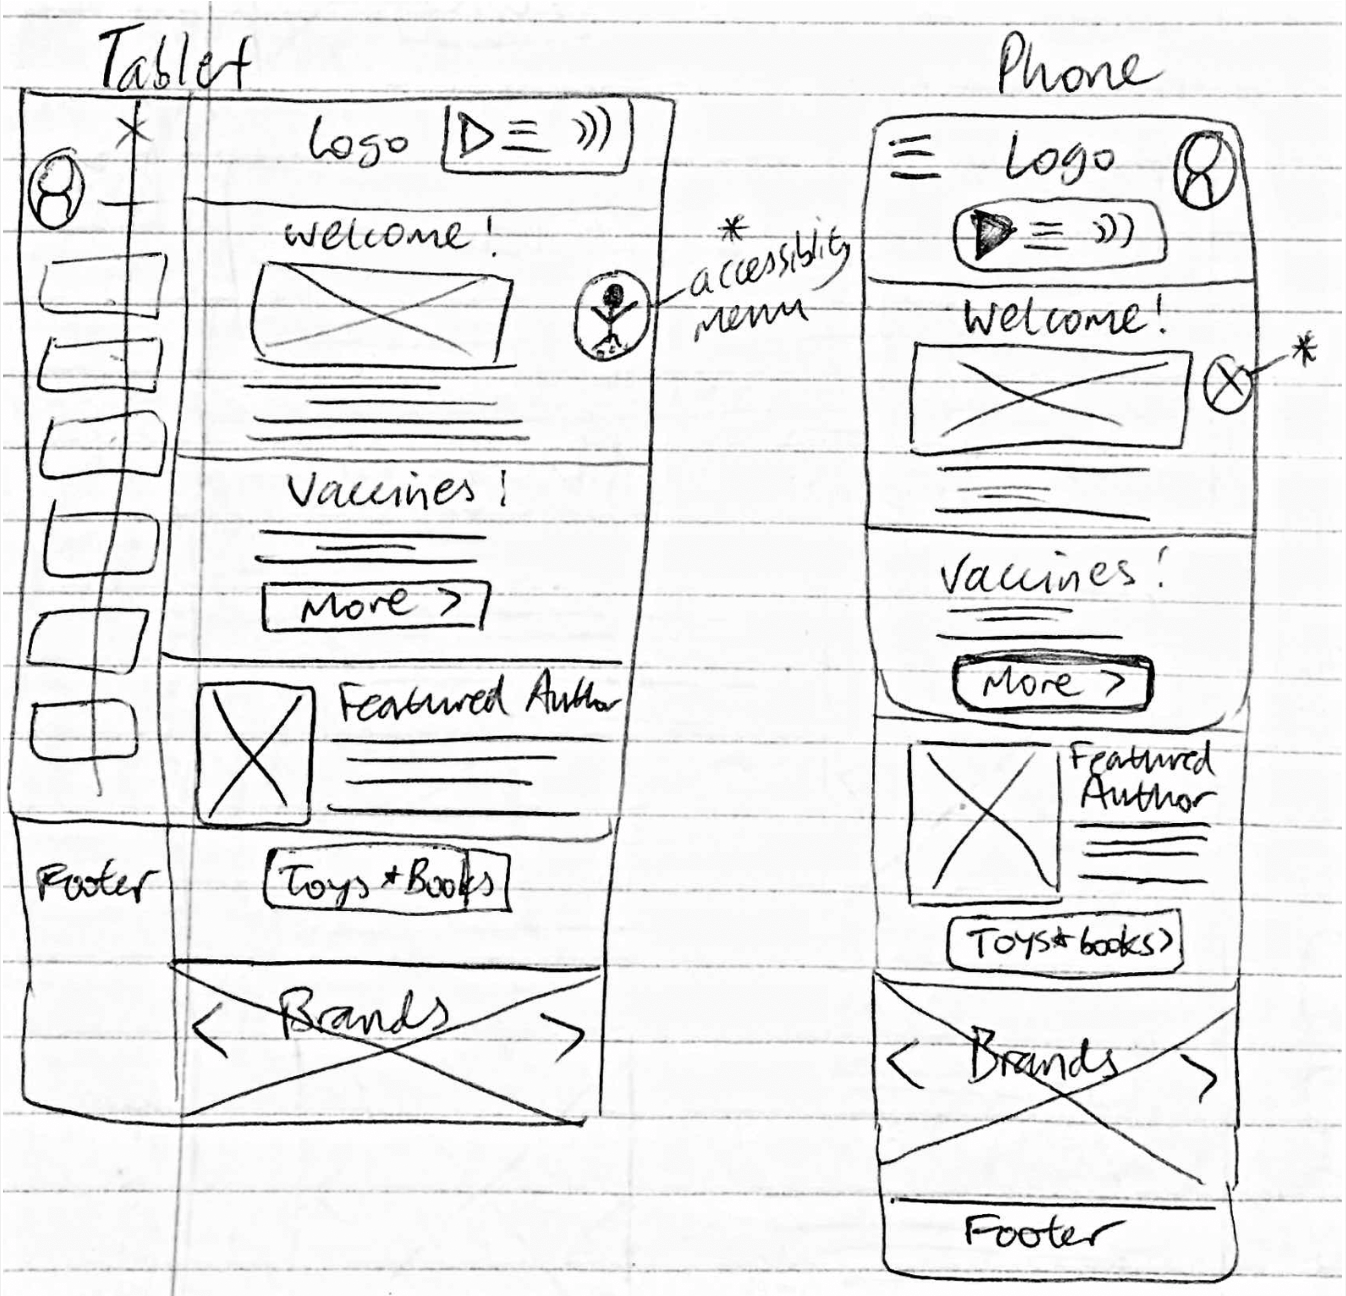 Tablet
Logo
welcome!
* accessiblity
menu
Vaccines!
More >
Featured Author
Footer
Toys + Books
< Brands >
Phone
Logo
Welcome!
*
Vaccines!
More >
Featured
Author
Toys + books>
< Brands >
Footer